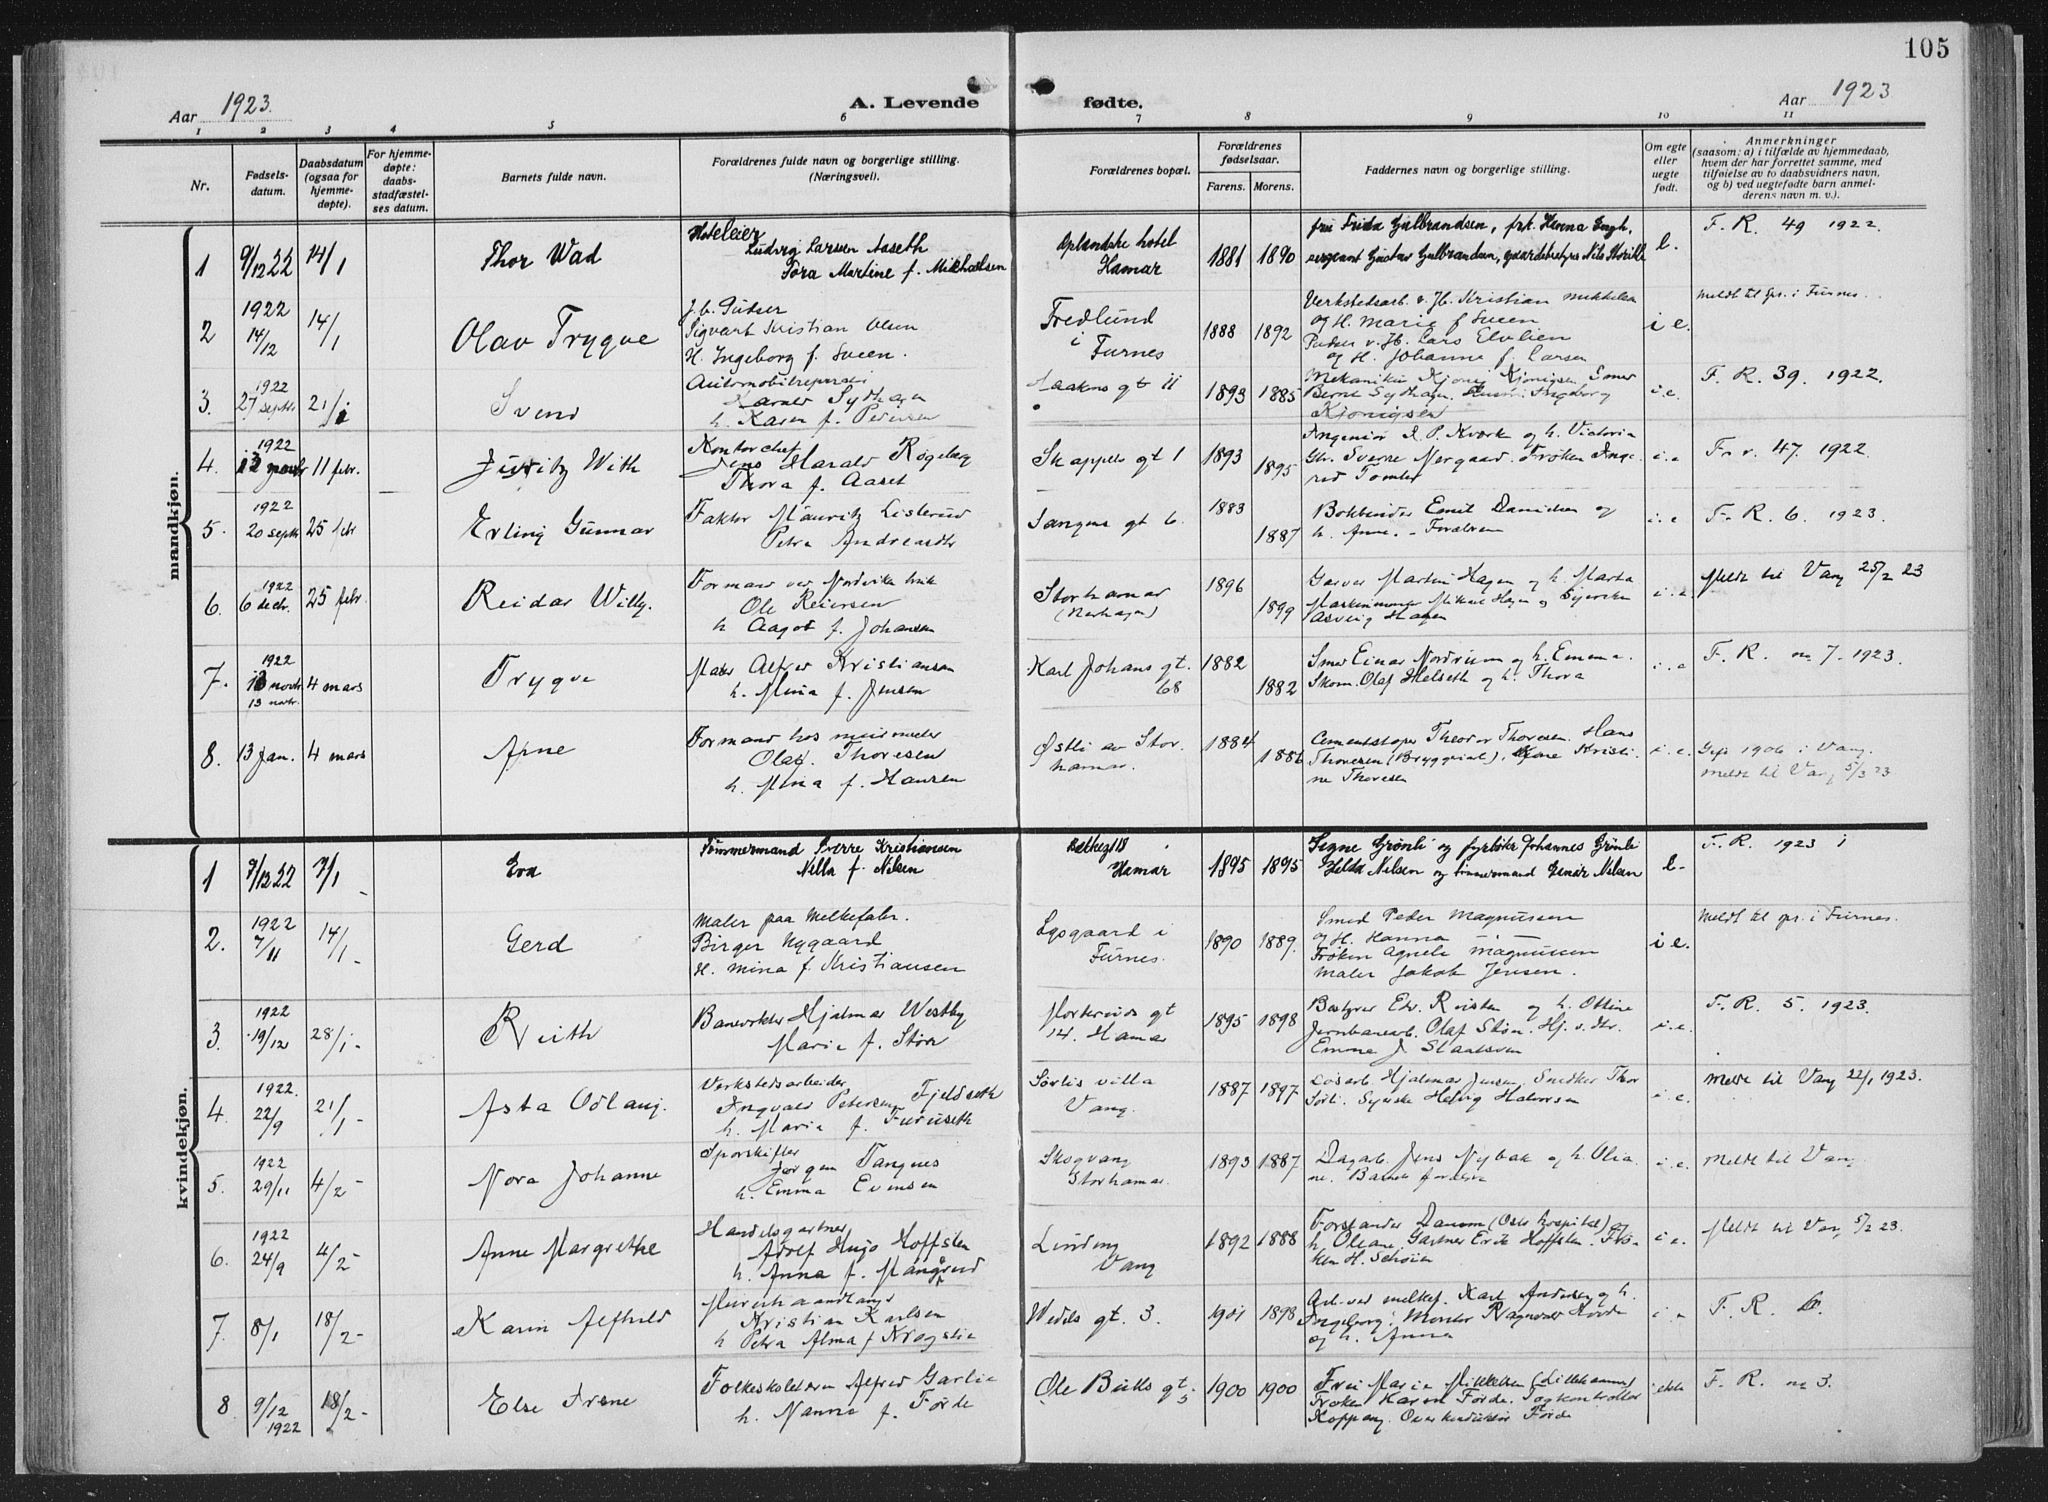 105
Aar 1923.
A. Levende fødte.
Aar 1923
1 2 3 4 5 6 7 8 9 10 11
Nr.
Fødsels-
datum.
Daabsdatum
(ogsaa for
hjemme-
døpte).
For hjemme-
døpte:
daabs-
stadfæstel-
ses datum.
Barnets fulde navn.
Forældrenes fulde navn og borgerlige stilling.
(Næringsvei).
Forældrenes bopæl.
Forældrenes
fødselsaar.
Farens. Morens.
Faddernes navn og borgerlige stilling.
Om egte
eller
uegte
født.
Anmerkninger
(saasom: a) i tilfælde av hjemmedaab,
hvem der har forrettet samme, med
tilføielse av to daabsvidners navn,
og b) ved uegtefødte barn anmel-
derens navn m. v.).
mandkjøn.
1 9/12 22 14/1 Thor Wad
Hoteleier
Ludvig Larsen Aaseth
Tora Martine f. Mikhaelsen
Oplandske hotel
Hamar
1881 1890
fru Frida Gulbrandsen, frk. Herena Engh,
sersjeant Gustav Gulbrandsen, gaardsbestyrer Nils
e.
F. R. 49 1922.
2 1922
14/12 14/1 Olav Trygve
J.b. Pudser
Sigvart Kristian Olsen
H. Ingeborg f. Sveen.
Fredlund
i
Furnes
1888 1892
Verkstedsarb. v. Jb. Kristian Mikkelsen
og H. Marie f Sveen
Pudser v. Jb. Lars Elvlien
og H. Johanne f. Larsen
i e.
Meldt til spr. i Furnes.
3. 1922
27 septbr 21/1 Svend
Automobilreparatør
Harald Sydhagen
h. Karen f. Pedersen
Haakons gt 11
1893 1885
Mekaniker Kjønig Kjønigsen Smed
Berne Sydhagen. Ingeborg
Kjønigsen
i.e.
F. R. 39. 1922.
4. 1922
13 novbr 11 febr. Juritz With
Kontorchef
Jens Harald Røgeberg
Thora f. Aaset
Skappels gt 1
1893 1895
Ingeniør R. P. Kværk og h. Victoria
Gbr. Sverre Nergaard. Frøken Inge-
rid Tomter
i.e
F. r. 47. 1922.
5. 1922
20 septbr 25 febr Erling Gunnar
Faktor Mauritz Listerud
Petra Andreasdtr
Vangens gt 6.
1883 1887
Bokbinder Emil Danielsen og
h. Anne. - Forældrene
i. e
F. R. 6. 1923.
6. 1922
6 decbr. 25 febr. Reidar Willy.
Formand ved Nordvika bruk
Ole Reiersen
h Aagot f. Johansen
Storhamar
(Norhagen)
1896 1899
Garver Martin Hagen og h. Marta
Maskinmester Mikael Hagen og Syerske
Aasveig Hagen
i. e.
Meldt til Vang 25/2 23
7. 1922
13 novbr.
13 novbr. 4 mars Trygve
Maler Alfred Kristiansen
h. Mina f. Jensen
Karl Johans gt.
68
1882 1882
Smed Einar Nordrum og h. Emma.
Skom. Olaf Helseth og h. Thora
i. e
F. R. no 7. 1923.
8. 13 Jan. 4 mars Arne
Formand hos murmester
Olaf. Thoresen
h. Mina f. Hansen
Østli av Stor-
hamar.
1884 1886
Cementstøper Theodor Thoresen. Hans
Thoresen (Bryggeriarb). Kristi-
ne Thoresen
i. e.
Gift 1906 i Vang.
Meldt til Vang 5/3 23
kvindekjøn.
1 9/12 22 7/1 Eva
Tømmermand Sverre Kristiansen
Nella f. Nilsen
Hamar
1895 1895
Signe Grønli og fyrbøter Johannes Grønli
Helda Nilsen og tømmermand Gunar Nilsen
e-
F. R. 1923 1
2. 1922
7/11 14/1 Gerd
Maler paa Melkefabr.
Birger Nygaard
H. Mina f. Kristiansen
Lysgaard i
Furnes.
1890 1889.
Smed Peder Magnussen
og H. Hanna
Frøken Agnete Magnussen
Maler Jakob Jensen.
i e.
Meldt til spr. i Furnes.
3. 1922
19/12 28/1 Ruth
Banevokter Hjalmar Westby
Marie f. Stöer
Morterud's gt
14. Hamar
1895 1898
Bestyrer Edv. Risten og h. Ottine
Jernbanearb. Olaf Stöer. Hj. v. Str.
Emma J Staalsven
i. e.
F. R. 5. 1923.
4. 1922.
22/9 21/1 Asta Odlaug.
Verkstedsarbeider
Ingvald Petersen Fjeldseth
h. Maria f. Furuseth
Sørlis villa
Vang.
1887 1897
Løsarb. Hjalmar Jensen Snedker Thor
Sørli. Syerske Helvig Halvorsen
i. e.
Meldt til Vang 22/1 1923.
5. 1922
29/11 4/2 Nora Johanne
Sporskifter
Jørgen Tangnes
h. Emma Evensen
Skogvang
Storhamar.
1893 1887
Dagarb. Jens Nybak og h. Olia-
ne. Barnets forældre
i. e.
Meldt til Vang
6. 1922
24/9 4/2 Anne Margrethe
Handelsgartner
Adolf Hugo Hoffsten
h. Anna f. Mangerud
Linding
Vang
1892 1888
Forstander Danom (Oslo hospital) og
h Oleane. Gartner Erik Hoffsten. Frø-
ken H. Schøien
i e.
Meldt til Vang 5/2 23.
7. 8/1 18/2 Karin Alfhild
Murerhaandlanger
Kristian Karlsen
h Petra Alma f Krogstie
Wedels gt. 3.
1901 1898
Arb. ved melkef. Karl Andersen og h.
Ingeborg; Montør Ragnvald Horde
og h. Anna
i. e
F. R. 10.
8 9/12
1922 18/2 Else Irene
Folkeskolelærer Alfred Garlie
h. Nanna f. Förde
Ole Bulls gt.
5
1900 1900
Fru Marie Mikkelsen (Lillehammer)
Frøken Karen Förde. Togkontrollør
Koppang. Overkonduktør Förde
i ekte
F. R. no 3.